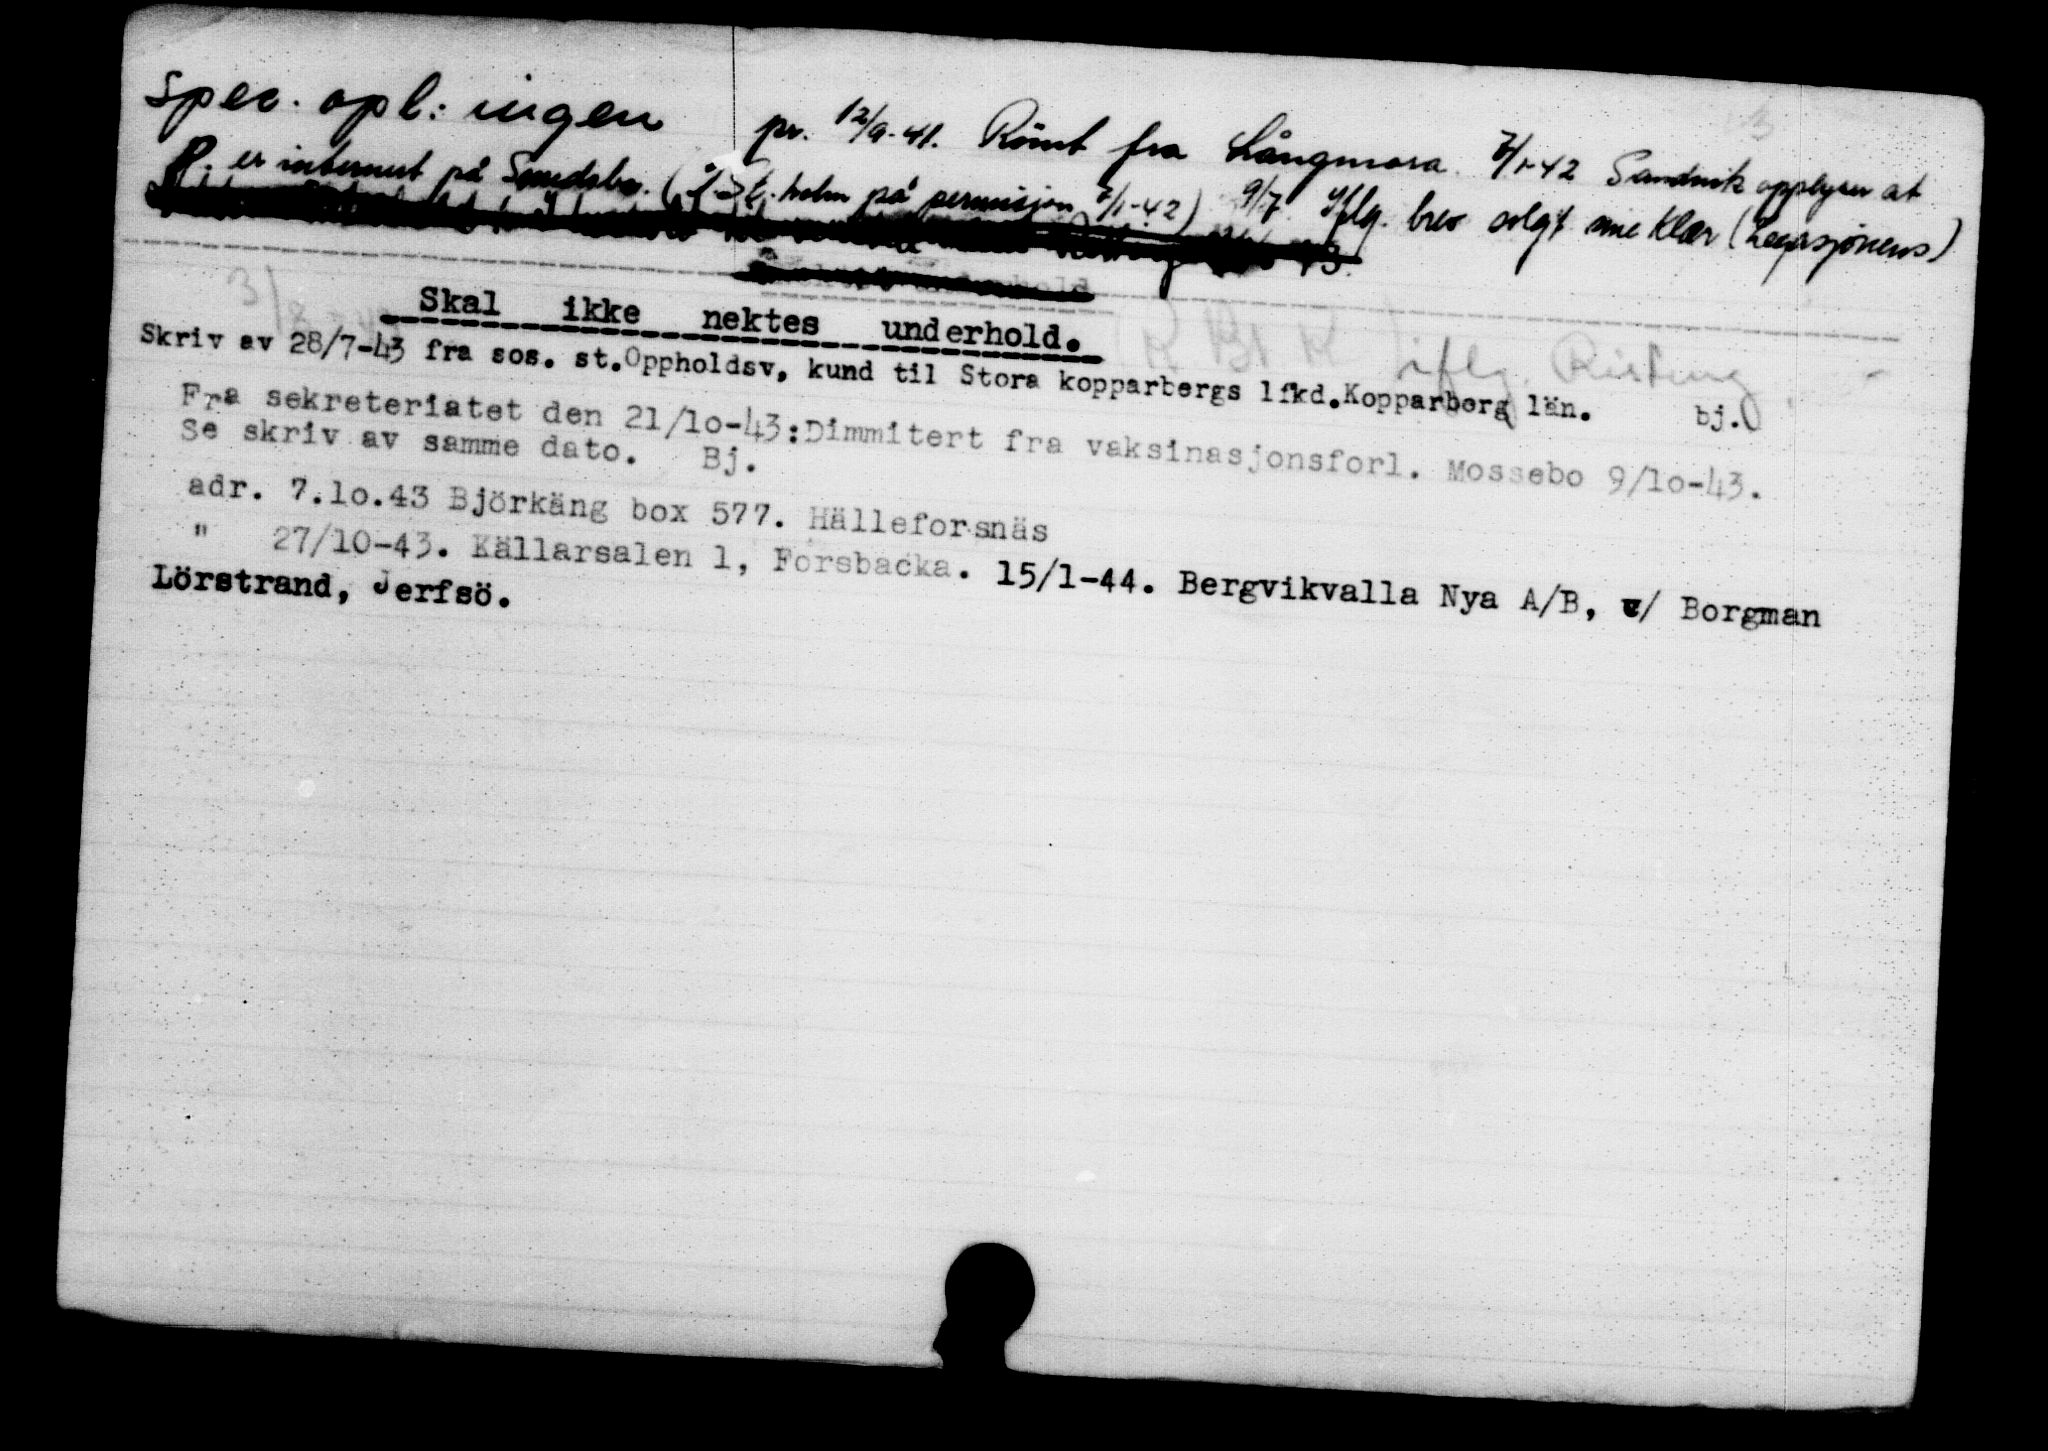 Spec. opl: ingen pr. 12/9-41. Römt fra Långmora. 7/1-42 Sandvik opplyser at
P. er internert på Smedsbo. (I St.holm på permisjon 7/1-42) 9/7 Iflg. brev solgt sine klær (Legasjonens)
Skal ikke nektes underhold.
iflg. Risting
Skriv av 28/7-43 fra sos. st.Oppholdsv, kund til Stora kopparbergs lfkd.Kopparberg län. bj.
Fra sekreteriatet den 21/lo-43:Dimmitert fra vaksinasjonsforl. Mossebo 9/lo-43.
Se skriv av samme dato. Bj.
adr. 7.lo.43 Björkäng box 577. Hälleforsnäs
" 27/10-43. Källarsalen 1, Forsbacka. 15/1-44. Bergvikvalla Nya A/B, v/ Borgman
Lörstrand, Jerfsö.